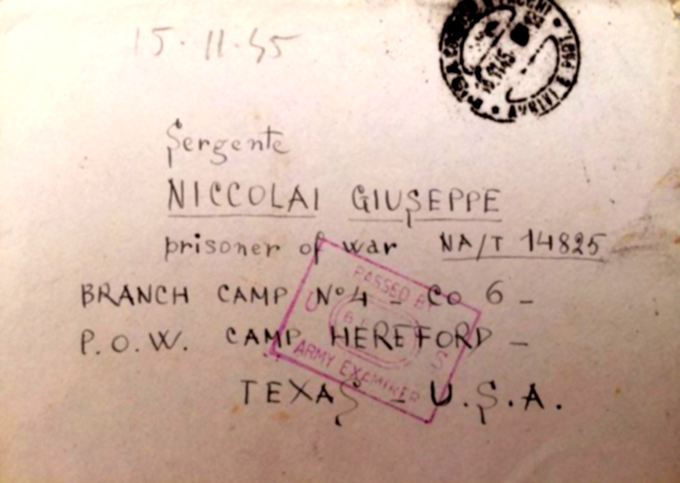 15·11·45
Sergente
NICCOLAI GIUSEPPE
prisoner of war NA/T 14825
BRANCH CAMP Nº4 - CO 6 -
P.O.W. CAMP HEREFORD -
TEXAS - U.S.A.
PASSED BY
U S
ARMY EXAMINER